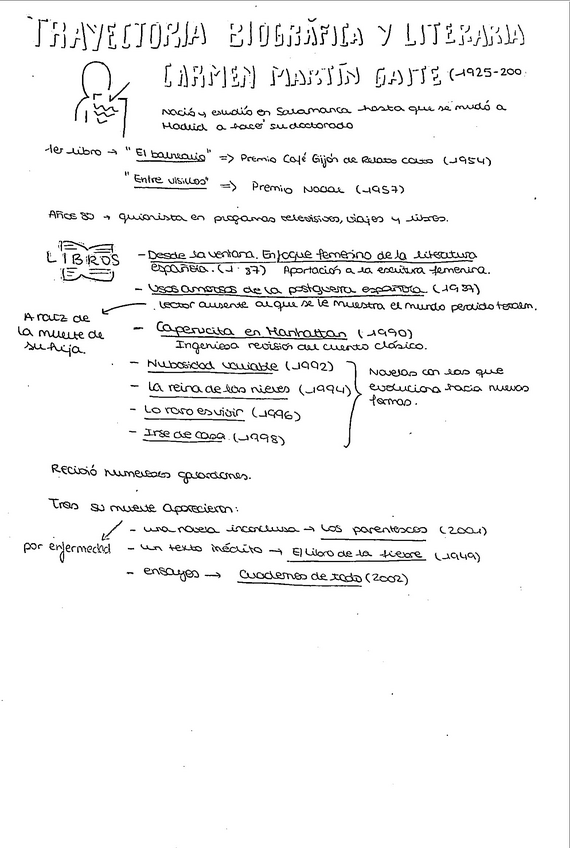 TRAYECTORIA BIOGRÁFICA Y LITERARIA
CARMEN MARTÍN GAITE (1925-200
Nació y estudió en Salamanca hasta que se mudó a
Madrid a hacer su doctorado
1er libro → "El balneario" => Premio Café Gijón de Relato corto (1954)
"Entre visillos" => Premio Nadal (1957)
Años 80 → guionista en programas televisivos, viajes y libros.
LIBROS
- Desde la ventana. Enfoque femenino de la literatura
española. (1 87) Aportación a la escritura femenina.
- Usos amorosos de la postguerra española (1987)
lector ausente al que se le muestra el mundo perdido
A raíz de
la muerte de
su hija.
- Caperucita en Manhattan (1990)
Ingeniosa revisión del cuento clásico.
- Nubosidad variable (1992)
- La reina de las nieves (1994)
- Lo raro es vivir (1996)
- Irse de casa (1998)
Novelas con las que
evoluciona hacia nuevas
formas.
Recibió numerosos galardones.
Tras su muerte aparecieron:
por enfermedad
- una novela inconclusa → Los parentescos (2001)
- un texto inédito → El libro de la fiebre (1949)
- ensayos → Cuadernos de todo (2002)